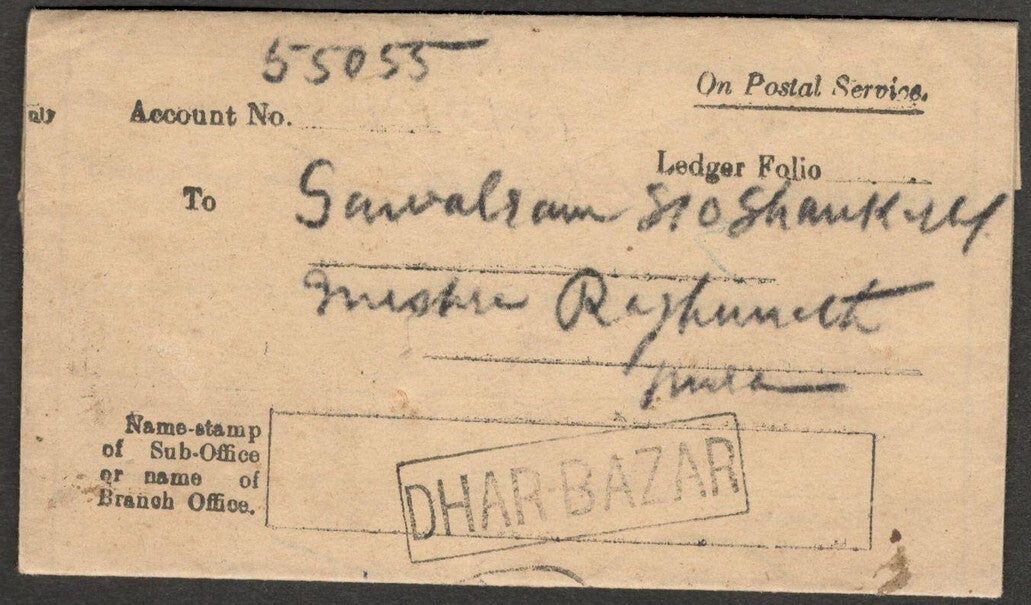 55055
On Postal Service.
Account No.
Ledger Folio
To Sawalram S/o Shank
Raghunath
Name-stamp
of Sub-Office
or name of
Branch Office.
DHAR-BAZAR